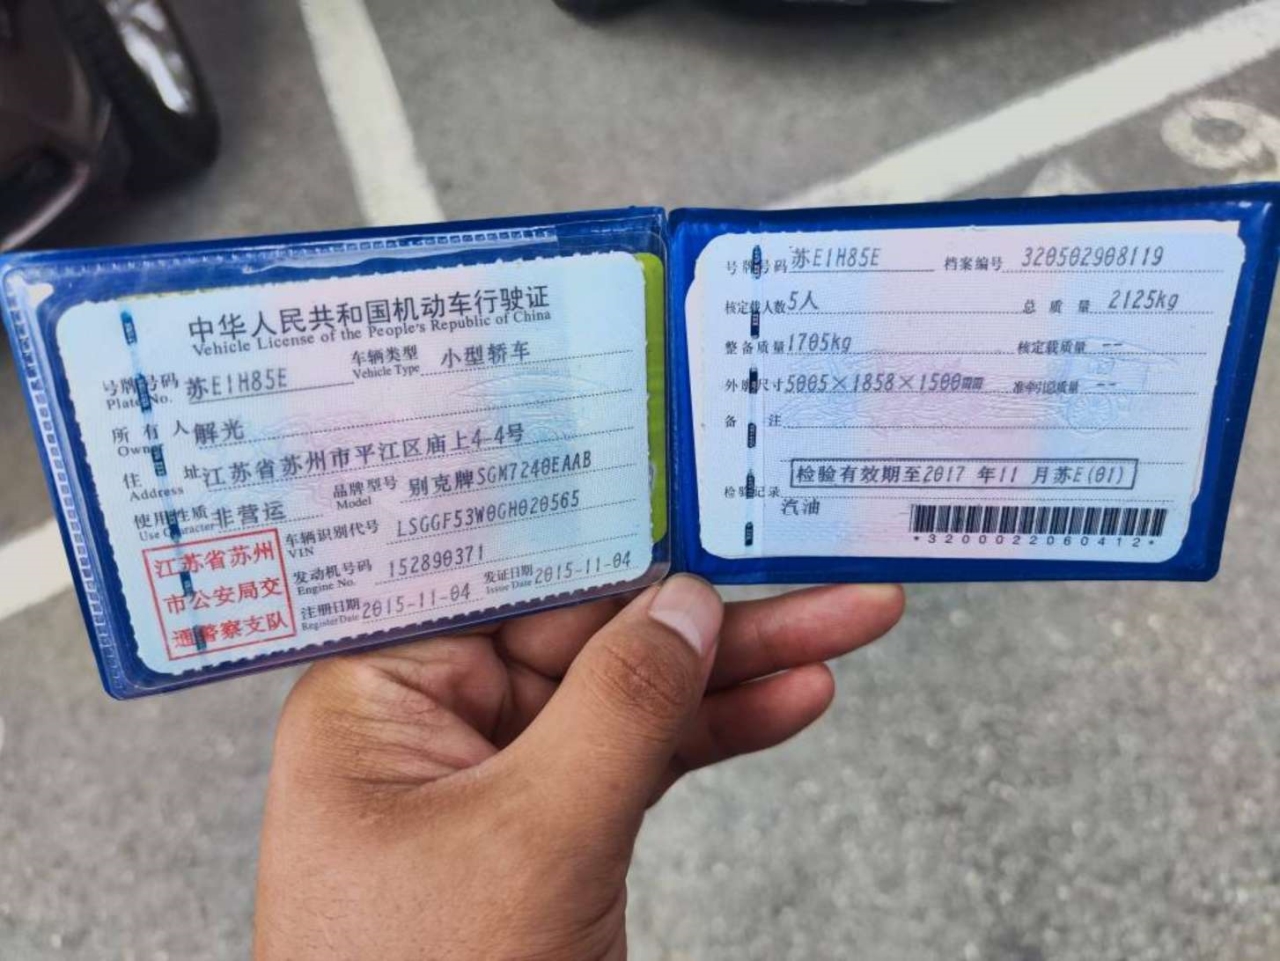 中华人民共和国机动车行驶证
Vehicle License of the People's Republic of China
号牌号码 Plate No. 苏E1H85E 车辆类型 Vehicle Type 小型轿车
所有人 Owner 解光
住址 Address 江苏省苏州市平江区庙上4-4号
使用性质 Use Character 非营运 品牌型号 Model 别克牌SGM7240EAAB
车辆识别代号 VIN LSGGF53W0GH020565
发动机号码 Engine No. 152890371
注册日期 Register Date 2015-11-04 发证日期 Issue Date 2015-11-04
江苏省苏州
市公安局交
通警察支队
号牌号码 苏E1H85E 档案编号 320502908119
核定载人数 5人 总质量 2125kg
整备质量 1705kg 核定载质量 --
外廓尺寸 5005×1858×1500mm 准牵引总质量 --
备注
检验有效期至2017 年11 月苏E(01)
检验记录
汽油
*3200022060412*